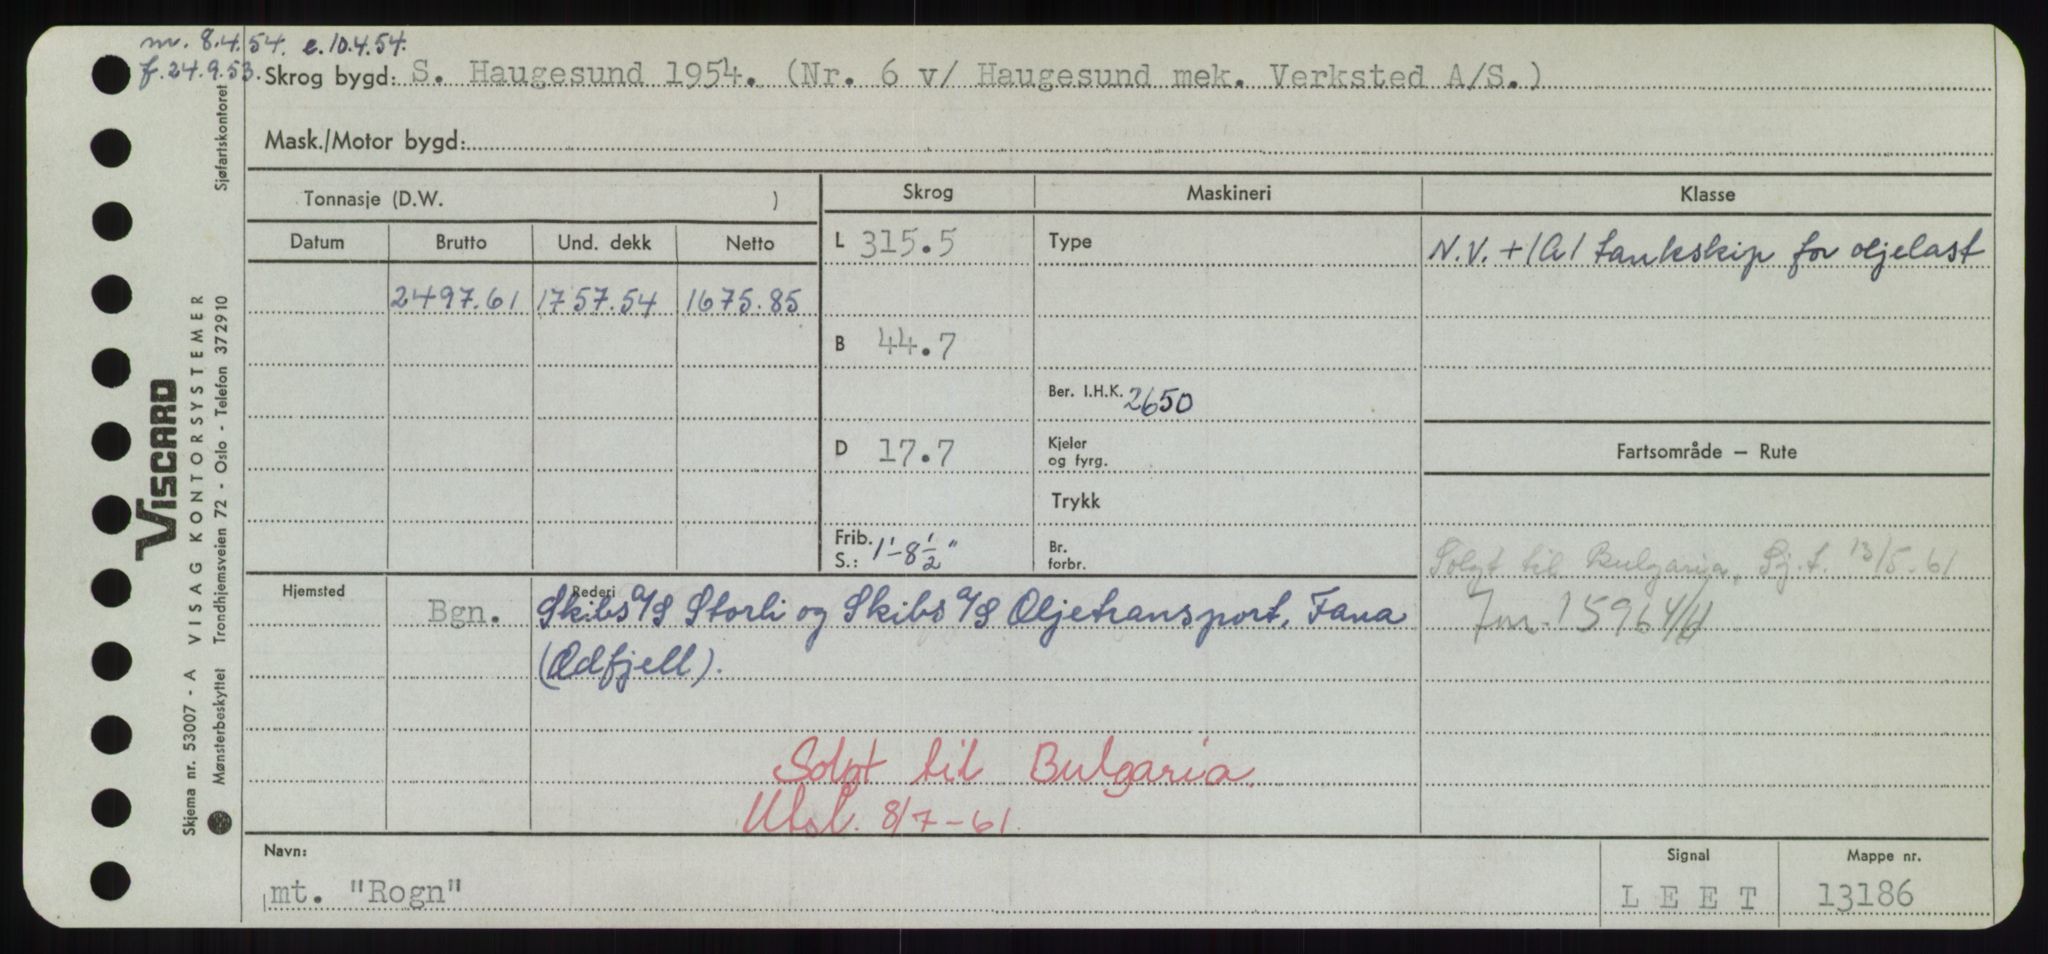 m. 8.4.54. e. 10.4.54.
f. 24.9.53. Skrog bygd: S. Haugesund 1954. (Nr. 6 v/ Haugesund mek. Verksted A/S.)
Mask./Motor bygd:
Tonnasje (D.W. )
Skrog
Maskineri
Klasse
Datum Brutto Und. dekk Netto
L 315.5
Type
N.V. +1A1 tankskip for oljelast
2497.61 1757.54 1675.85
B 44.7
Ber. I.H.K. 2650
D 17.7
Kjeler
og fyrg.
Fartsområde — Rute
Trykk
Frib.
S.: 1'-8½"
Br.
forbr.
Solgt til Bulgaria, Sj.f. 13/5-61
Jnr. 15964/61
Hjemsted
Bgn.
Rederi
Skibs A/S Storli og Skibs A/S Oljetransport, Fana
(Odfjell).
Solgt til Bulgaria.
Utsl. 8/7-61.
Navn:
mt. "Rogn"
Signal
L E E T
Mappe nr.
13186
VISCARD
VISAG KONTORSYSTEMER
Skjema nr. 53007 - A
Mønsterbeskyttet Trondhjemsveien 72 - Oslo - Telefon 372910
Sjøfartskontoret